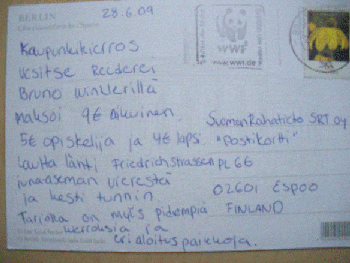 BERLIN
28.6.09
Kaupunkikierros
vesitse Reederei
Bruno Winklerillä
maksoi 9€ aikuinen,
5€ opiskelija ja 4€ lapsi.
Lautta lähti Friedrichstrassen
junaaseman vierestä
ja kesti tunnin
Tarjolla on myös pidempiä
kierroksia ja
eri aloituspaikkoja.
WWF
www.wwf.de
Suomen Rahatieto SRT Oy
"Postikortti"
PL 66
02601 ESPOO
FINLAND